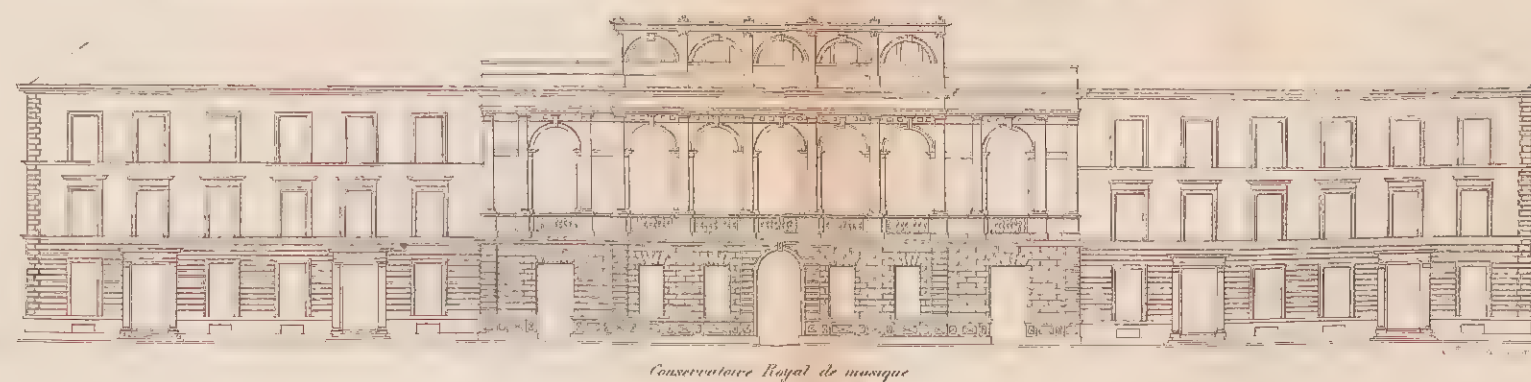 Conservatoire Royal de musique